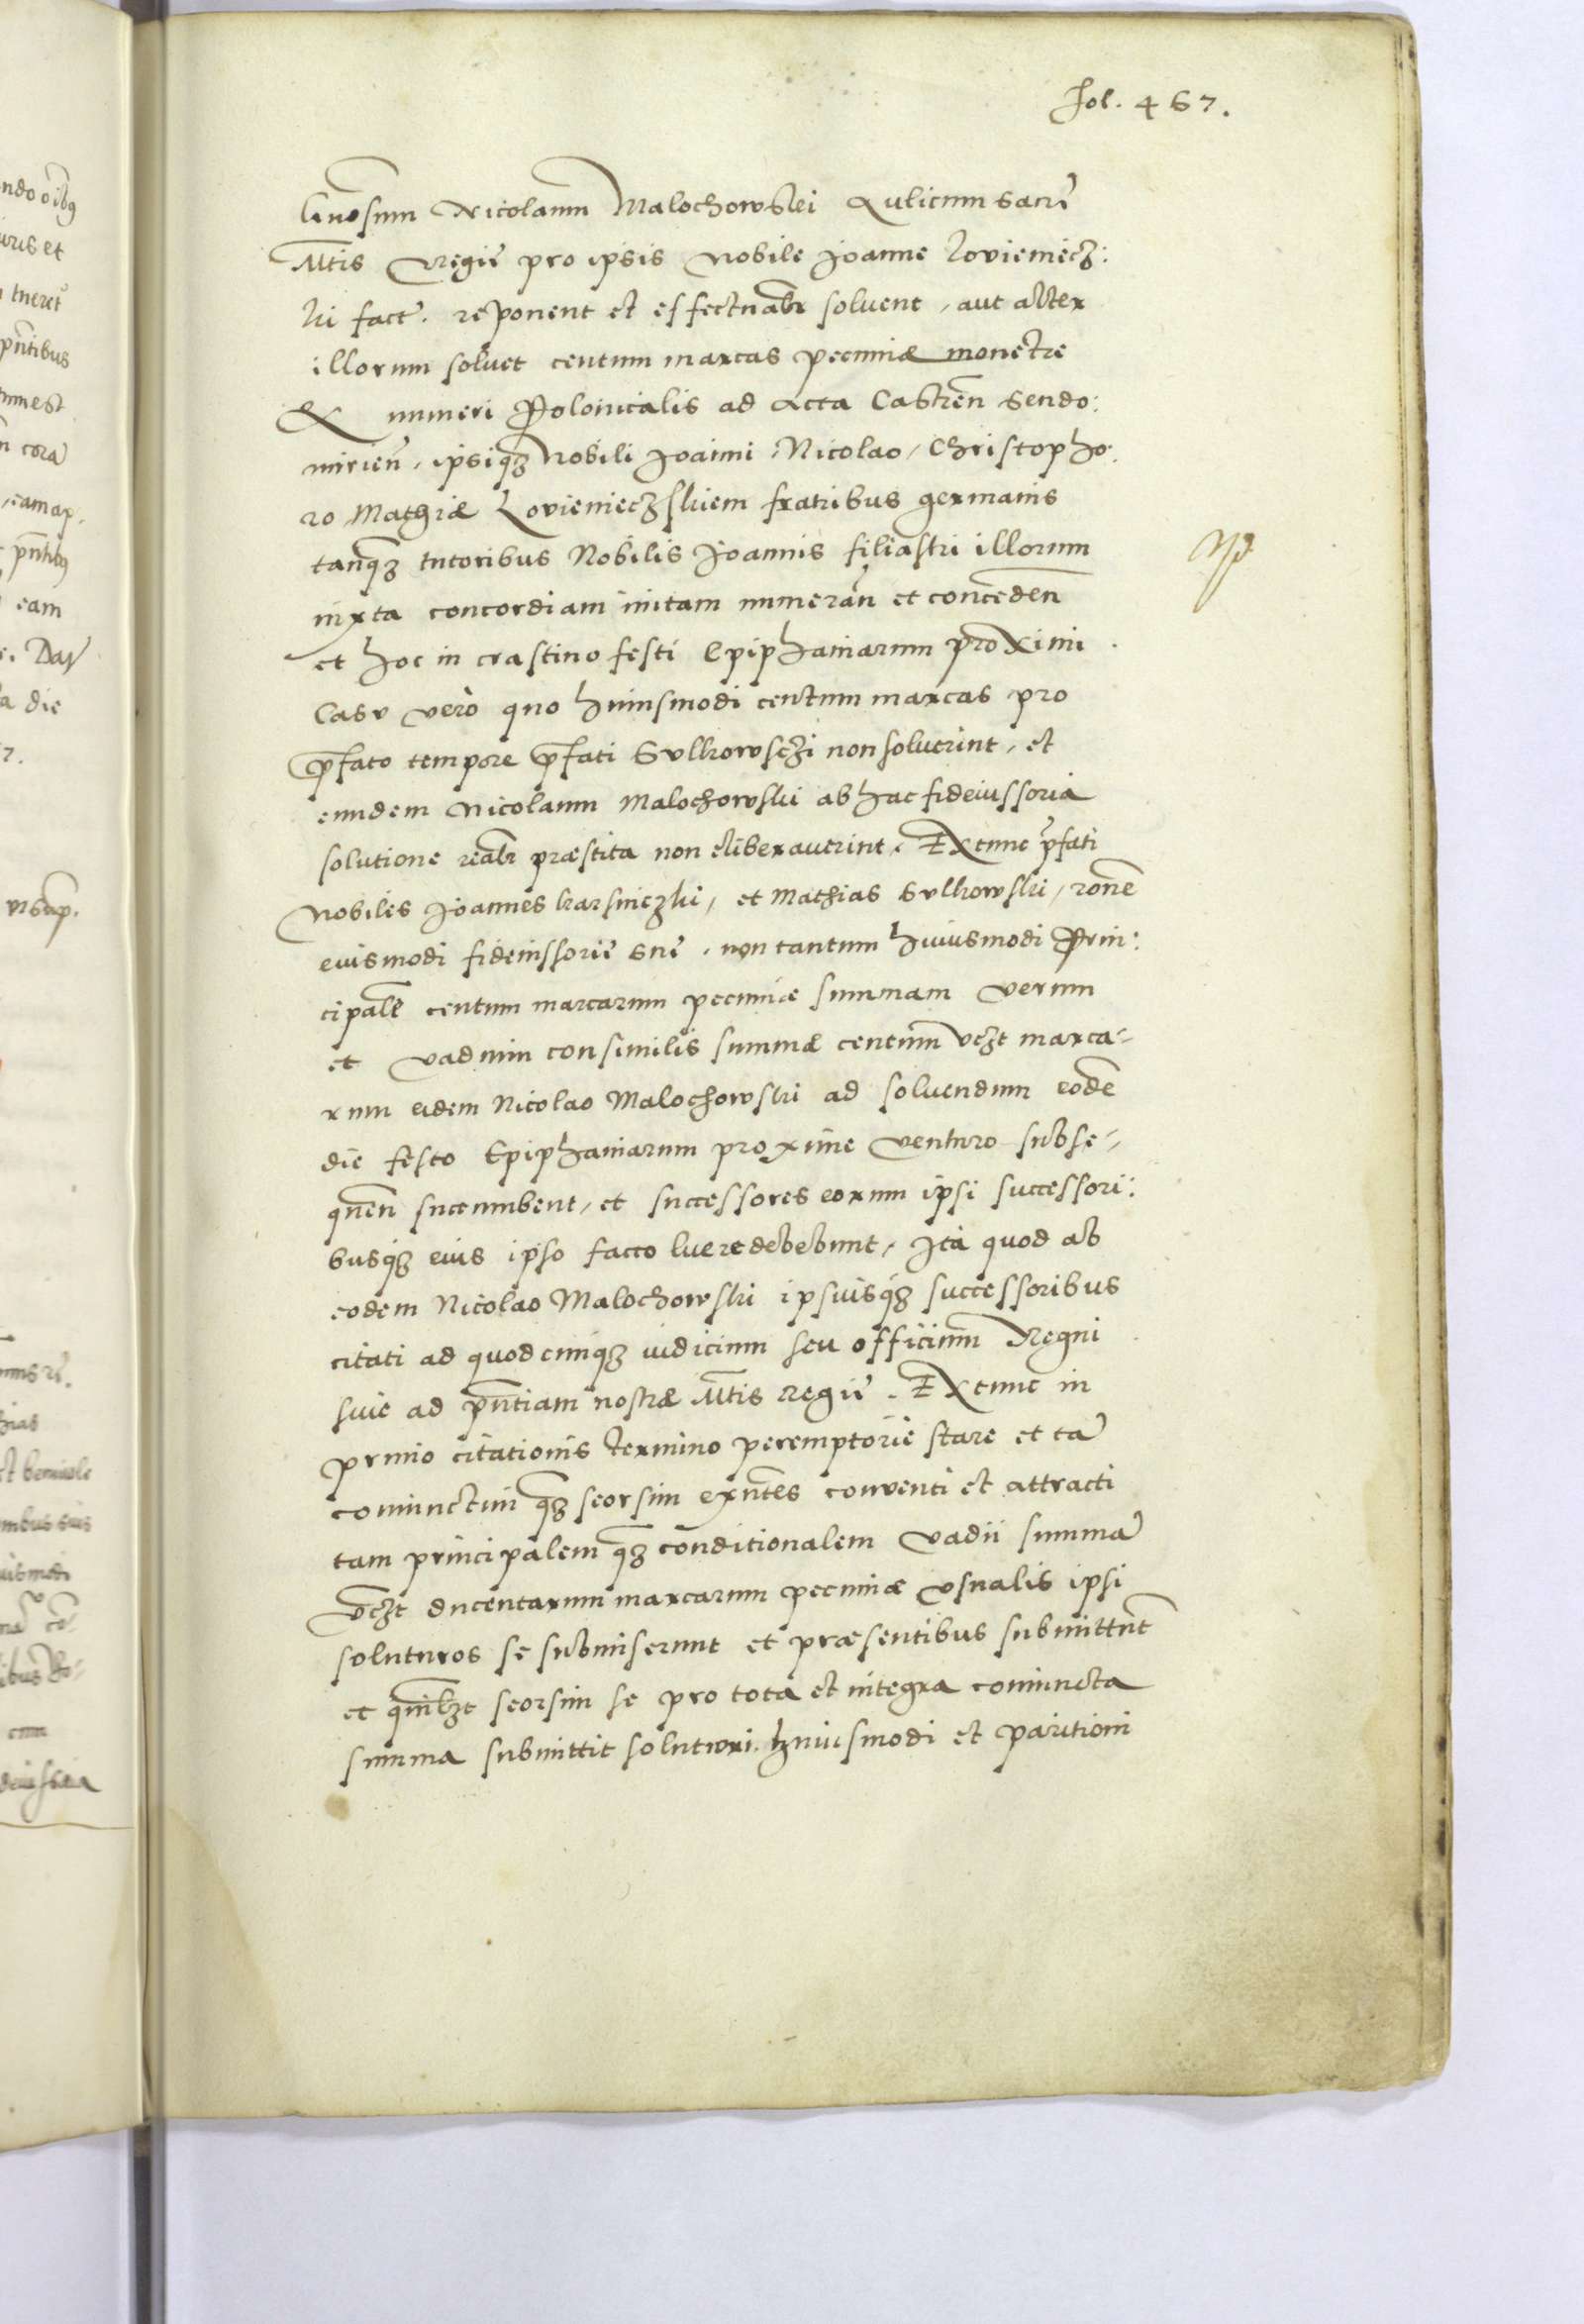 fol. 467.
Gnosum Nicolaum Malochowskij Aulicum Sacrę
Mtis Regię pro ipsis Nobile Joanne Lovieniecz:
ki fact. reponent et effectualr solvent, aut alter
illorum solvet centum marcas pecuniæ monetæ
& numeri Polonicalis ad Acta Castren̄ Sendo:
mirien̄, ipsiqȝ Nobili Joanni, Nicolao, Christopho:
ro Mathiæ Lovienieczskiem fratribus germanis
tanqȝ tutoribus Nobilis Joannis filiastri illorum
iuxta concordiam initam numeran̄ et conceden̄
et hoc in crastino festi Epiphaniarum proximi
Casu verò quo huiusmodi centum marcas pro
p̄fato tempore p̄fati Sulkowsczi non solverint, et
eundem Nicolaum Malochowski ab hac fideiussoria
solutione realr præstita non eliberaverint, Ex tunc p̄fati
Nobiles Joannes karsniczki, et Mathias Sulkowski, ronē
eiusmodi fideiussorię suę, non tantum huiusmodi Prin:
cipalē centum marcarum pecuniæ summam verum
et vadium consimilis summæ centum vczt marca-
rum eidem Nicolao Malochowski ad solvendum eodē
die festo Epiphaniarum proxime venturo subse-
quen̄ succumbent, et successores eorum ipsi successori:
busqȝ eius ipso facto luere debebunt, Ita quod ab
eodem Nicolao Malochowski ipsiusqȝ successoribus
citati ad quodcunqȝ iudicium seu officium Regni
sive ad pn̄tiam nostræ Mtis Regię. Ex tunc in
primo citationis termino peremptoriè stare et tā
coniunctim qȝ seorsim exn̄tes conventi et attracti
tam principalem qȝ conditionalem vadii summā
vczt ducentarum marcarum pecuniæ usualis ipsi
soluturos se submiserunt et præsentibus submittūt
et quilibzt seorsim se pro tota et integra coniuncta
summa submittit soluturi. huiusmodi et paritioni